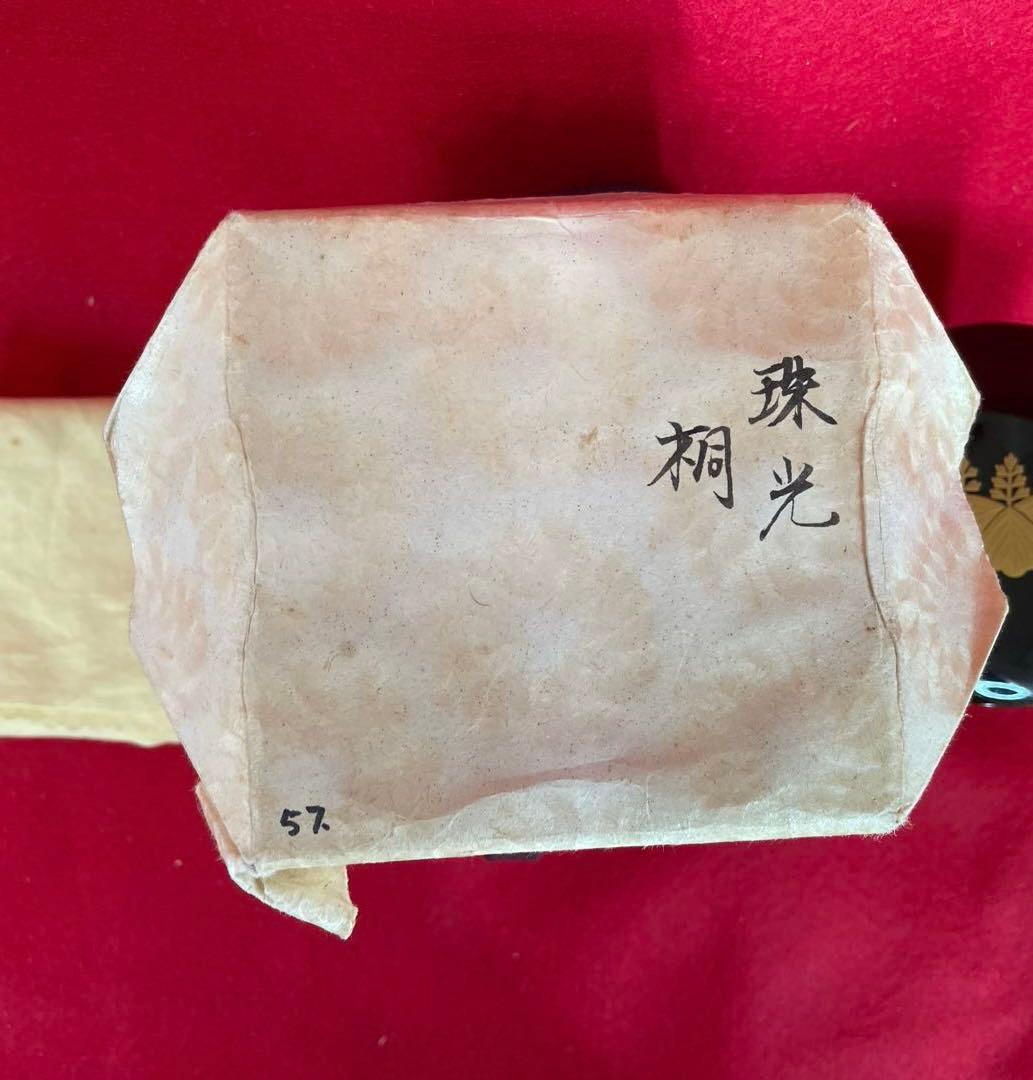 珠光
桐
57.